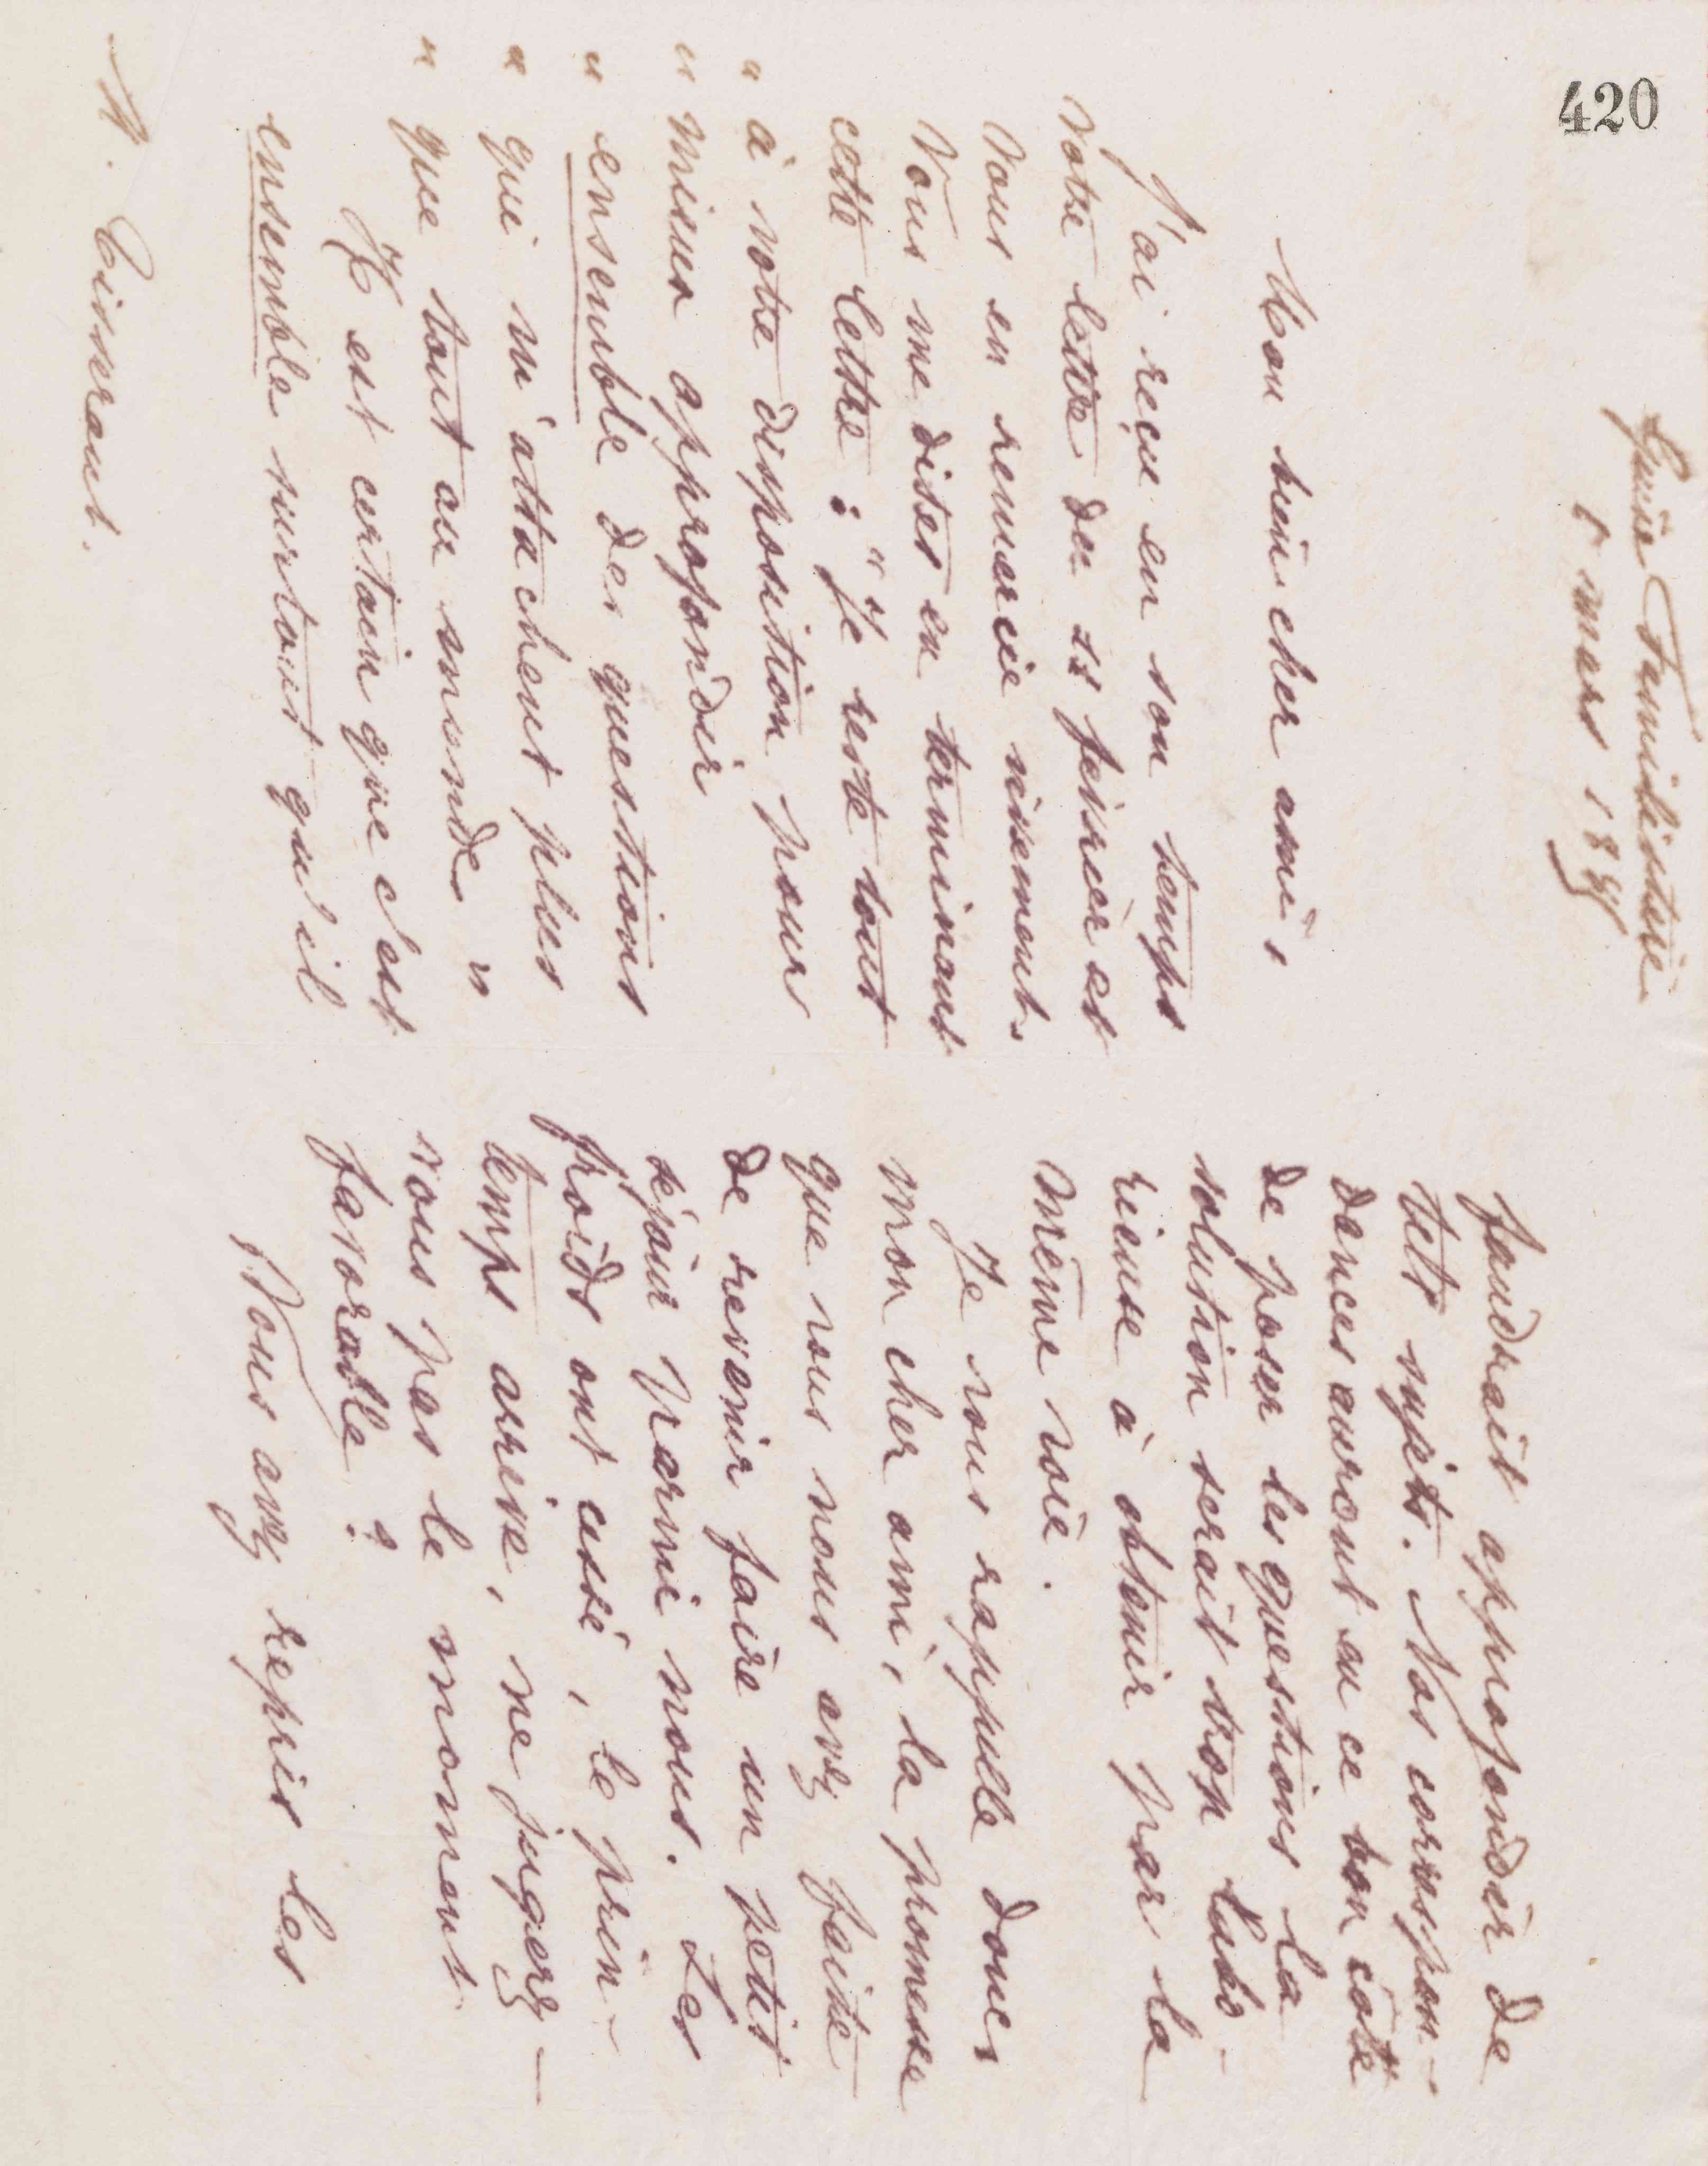 420
Guise Familistère
1 mars 1888
Mon bien cher ami,
J'ai reçu en son temps
votre lettre du 22 février et
vous en remercie vivement.
Vous me disiez en terminant
cette lettre : "Je reste tout
" à votre disposition pour
" mieux approfondir
" ensemble des questions
" qui m'attachent plus
" que tout au monde. "
Il est certain que c'est
ensemble surtout qu'il
M. Tisserant.
faudrait approfondir de
tels sujets. Nos correspon-
dances auront eu ce bon côté
de poser les questions la
solution serait trop labo-
rieuse à obtenir par la
même voie.
Je vous rappelle donc,
mon cher ami, la promesse
que vous nous avez faite
de revenir faire un petit
séjour parmi nous. Les
froids ont cessé, le prin-
temps arrive, ne jugerez-
vous pas le moment
favorable ?
Vous avez repris les